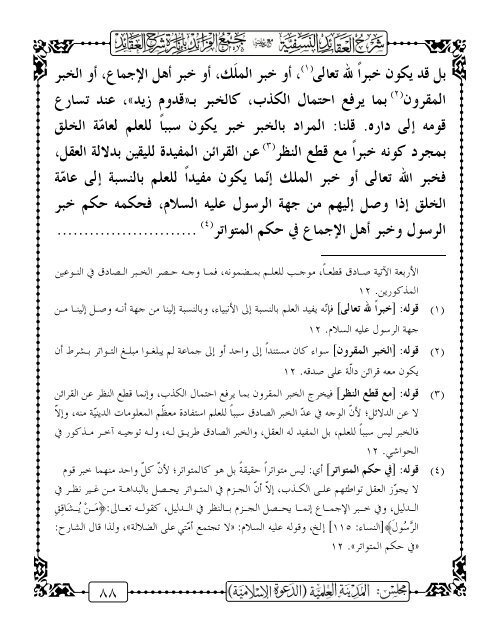 شرح العقائد النسفية مع جمع الفرائد بإنارة شرح العقائد
بل قد يكون خبراً لله تعالى(١)، أو خبر الملَك، أو خبر أهل الإجماع، أو الخبر
المقرون(٢) بما يرفع احتمال الكذب، كالخبر بـ«قدوم زيد»، عند تسارع
قومه إلى داره. قلنا: المراد بالخبر خبر يكون سبباً للعلم لعامّة الخلق
بمجرد كونه خبراً مع قطع النظر(٣) عن القرائن المفيدة لليقين بدلالة العقل،
فخبر الله تعالى أو خبر الملك إنّما يكون مفيداً للعلم بالنسبة إلى عامّة
الخلق إذا وصل إليهم من جهة الرسول عليه السلام، فحكمه حكم خبر
الرسول وخبر أهل الإجماع في حكم المتواتر(٤) ..........................
الأربعة الآتية صادق قطعـاً، موجب للعلـم بمضمونـه، فمـا وجـه حصـر الخبـر الصـادق فـي النـوعين
المذكورين. ١٢
(١) قوله: [خبراً لله تعالى] فإنّه يفيد العلم بالنسبة إلى الأنبياء، وبالنسبة إلينا من جهة أنـه وصـل إلينـا مـن
جهة الرسول عليه السلام. ١٢
(٢) قوله: [الخبر المقرون] سواء كان مستنداً إلى واحد أو إلى جماعة لم يبلغـوا مبلـغ التـواتر بشـرط أن
يكون معه قرائن دالّة على صدقه. ١٢
(٣) قوله: [مع قطع النظر] فيخرج الخبر المقرون بما يرفع احتمال الكذب، وإنما قطع النظر عن القرائن
لا عن الدلائل؛ لأنّ الوجه في عدّ الخبر الصادق سبباً للعلم استفادة معظم المعلومات الدينيّة منه، وإلاّ
فالخبر ليس سبباً للعلم، بل المفيد له العقل، والخبر الصادق طريـق لـه، ولـه توجيـه آخـر مـذكور في
الحواشي. ١٢
(٤) قوله: [في حكم المتواتر] أي: ليس متواتراً حقيقةً بل هو كالمتواتر؛ لأنّ كلّ واحد منهما خبر قوم لا
يجوّز العقل تواطئهم علـى الكـذب، إلاّ أنّ الجزم في المتواتر يحصـل بالبداهـة مـن غيـر نظر في
الدليل، وفي خبر الإجماع إنمـا يحصـل الجزم بـالنظر في الـدليل، كقولـه تعـالى: ﴿مَنْ يُشَاقِقِ
الرَّسُولَ﴾[النساء: ١١٥] إلخ، وقوله عليه السلام: «لا تجتمع أمّتي على الضلالة»، ولذا قال الشارح:
«في حكم المتواتر». ١٢
مجلس: المدينة العلمية (الدعوة الإسلامية)
٨٨